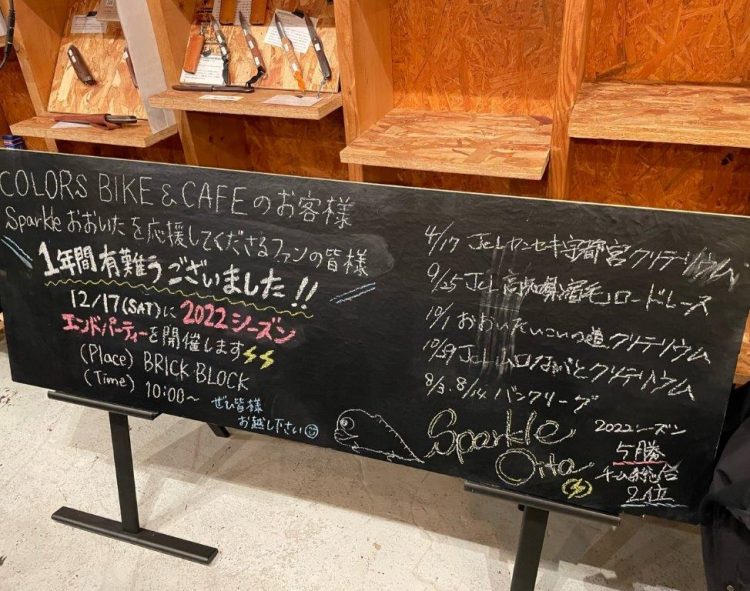 COLORS BIKE & CAFE のお客様
Sparkle おおいたを応援してくださるファンの皆様
1年間有難うございました!!
12/17(SAT)に 2022シーズン
エンドパーティーを開催します
(Place) BRICK BLOCK
(Time) 10:00～
ぜひ皆様
お越し下さい
4/17 JCLカンセキ宇都宮クリテリウム
9/25 JCL 高知県宿毛ロードレース
10/1 おおいたいこいの道クリテリウム
10/29 JCL山口ながとクリテリウム
8/3.8/14 バンクリーグ
Sparkle
Oita
2022シーズン
5勝
チーム総合
2位